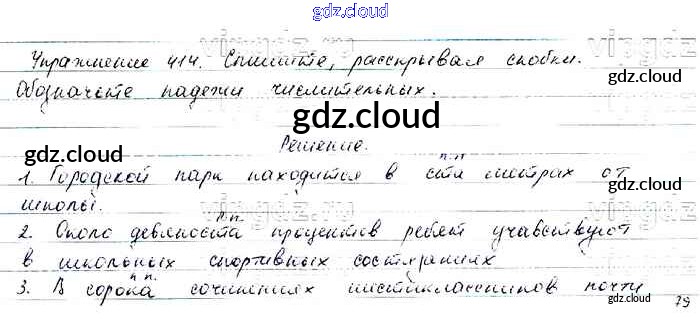 gdz.cloud
Упражнение 414. Спишите, раскрывая скобки.
gdz.cloud
Обозначьте падежи числительных.
gdz.cloud
Решение.
gdz.cloud
п.п.
1. Городской парк находится в ста метрах от
gdz.cloud
школы.
п.п.
2. Около девяноста процентов ребят учавствуют
в школьных спортивных состязаниях
gdz.cloud
п.п.
3. В сорока сочинениях шестиклассников почти
gdz.cloud
79